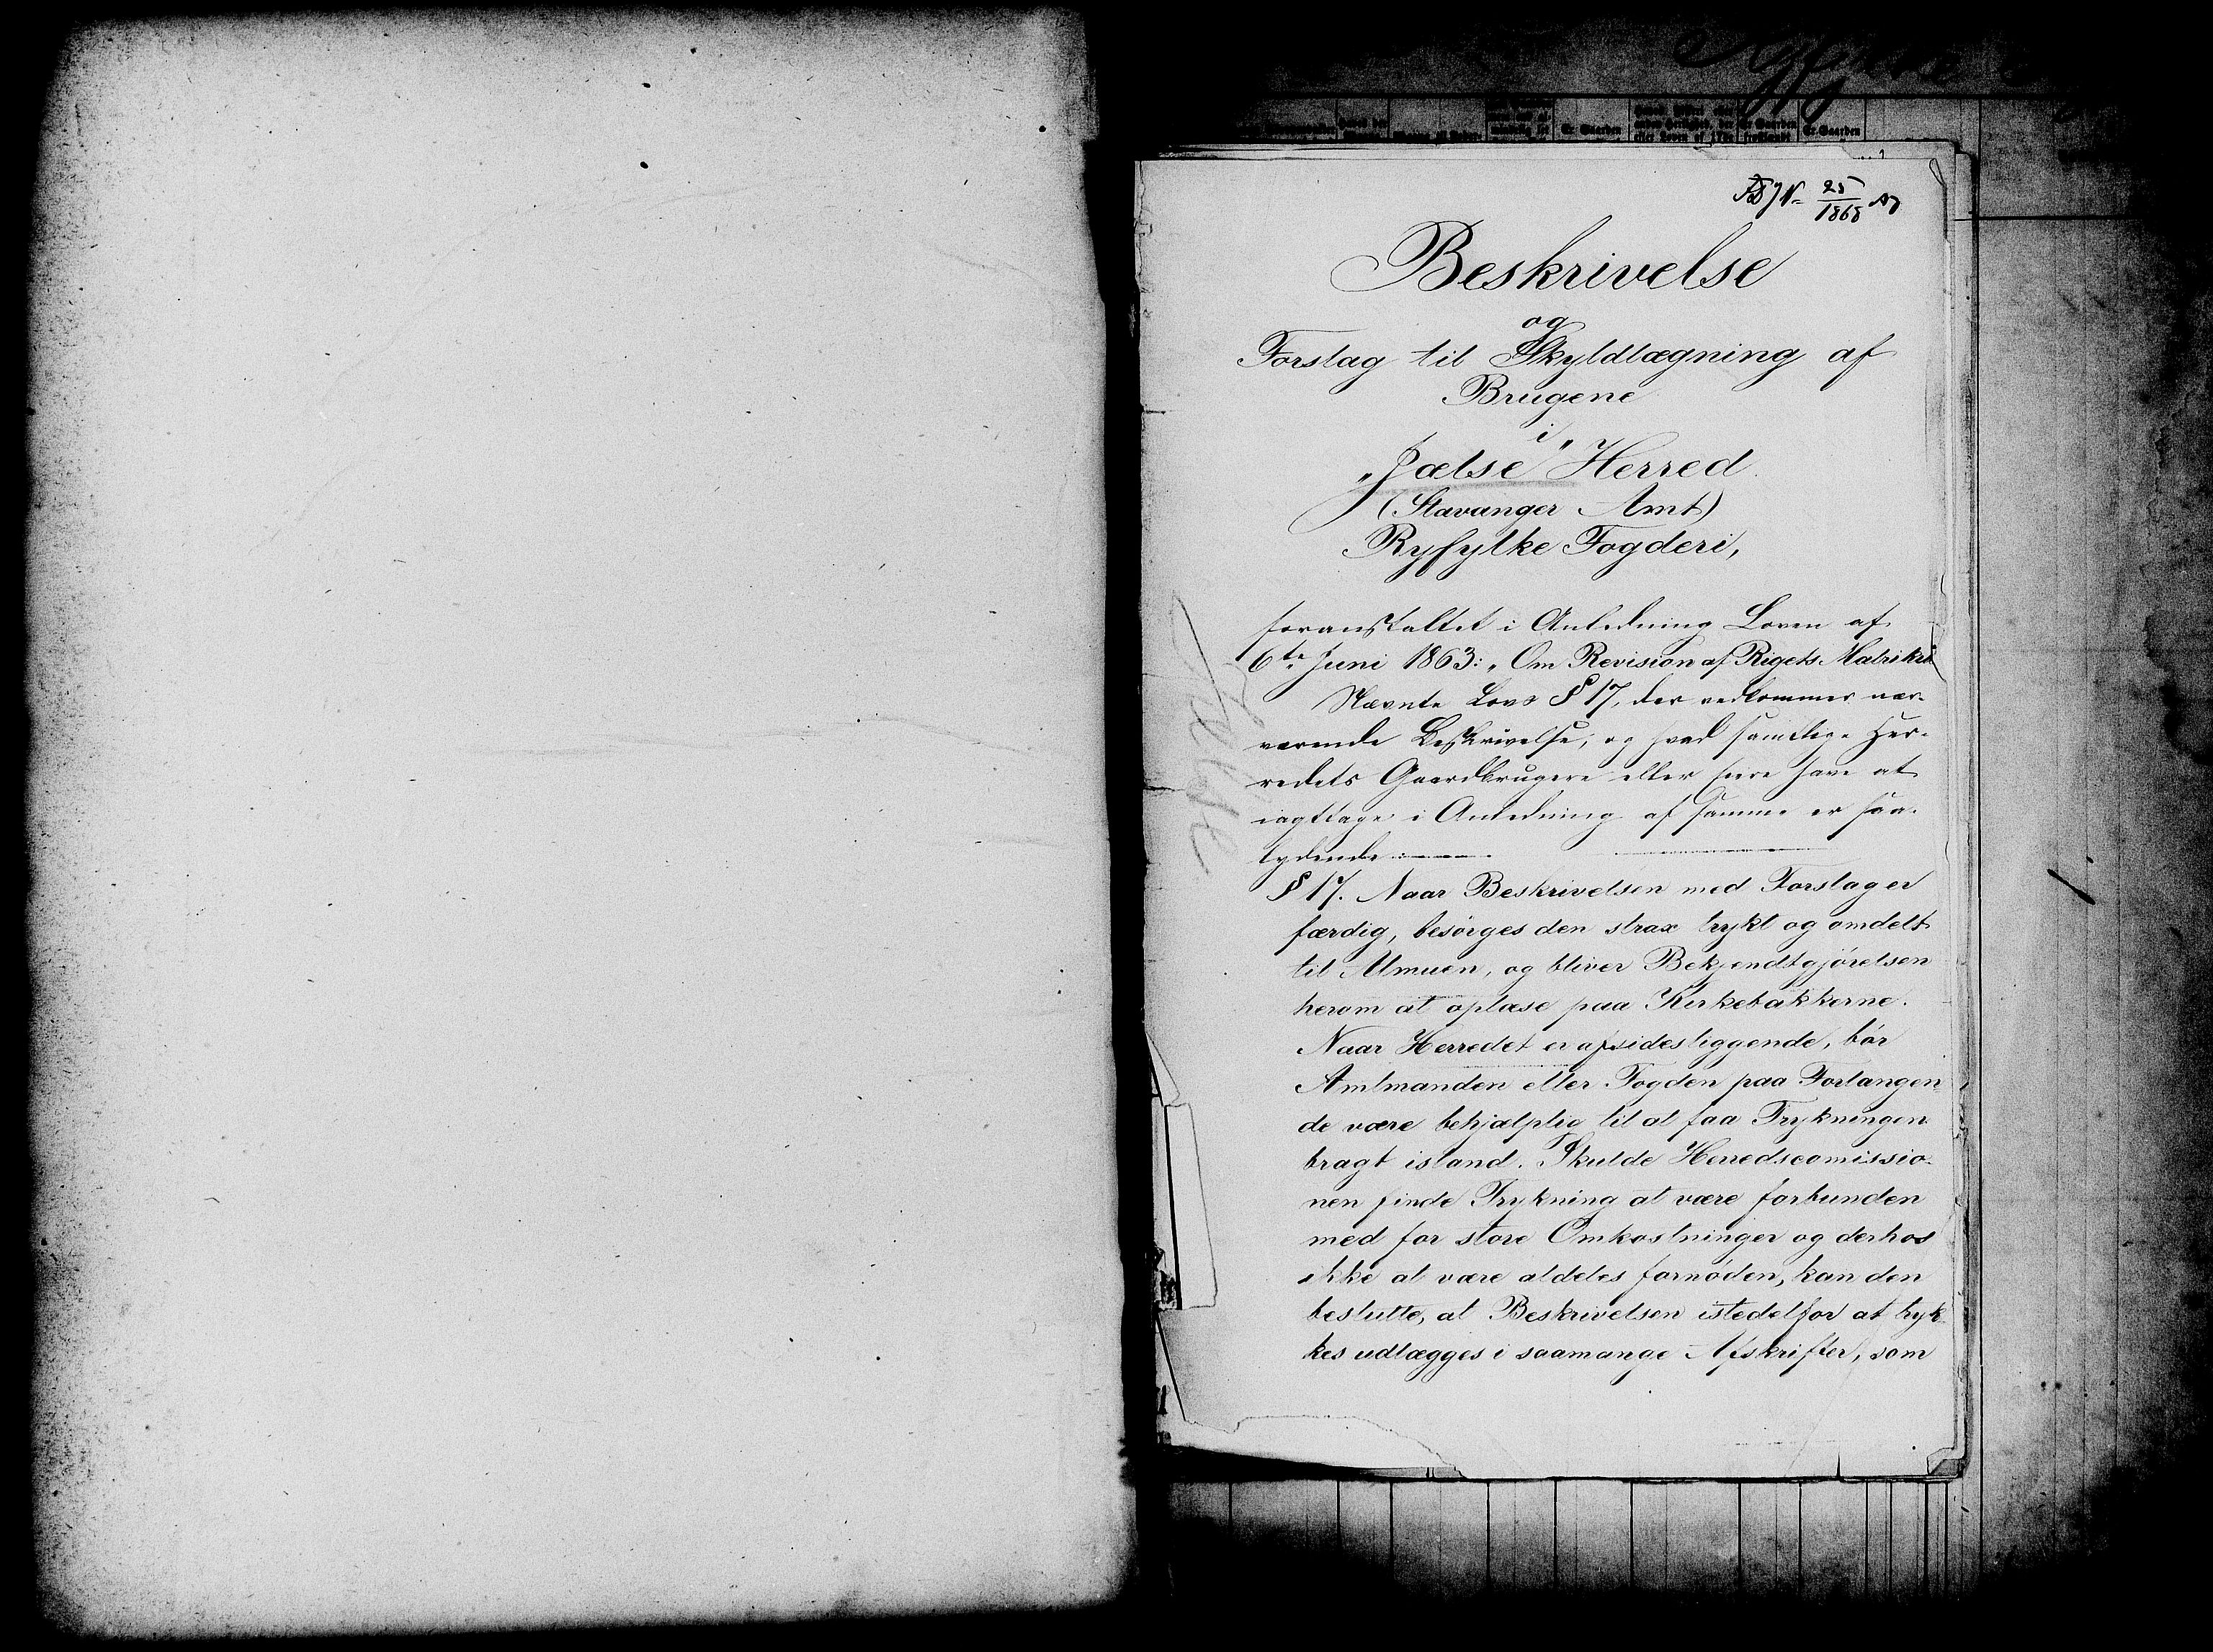 25
1868
Beskrivelse
og
Forslag til Skyldlægning af
Brugene
i
"Jælse" Herred
(Stavanger Amt)
Ryfylke Fogderi,
foranstaltet i Anledning Loven af
6te Juni 1863: "Om Revision af Rigets Matrikul
Nævnte Lovs § 17, der vedkommer nær-
værende Beskrivelse, og hvad samtlige Her-
redets Gaardbrugere eller Eiere have at
iagttage i Anledning af samme er saa-
lydende:
§ 17. Naar Beskrivelsen med Forslag er
færdig, besørges den strax trykt og omdelt
til Almuen, og bliver Bekjendtgjørelsen
herom at oplæse paa Kirkebakkerne.
Naar Herredet er afsides liggende, bør
Amtmanden eller Fogden paa Forlangen
de være behjælplig til at faa Trykningen
bragt istand. Skulde Herredscomissio-
nen finde Trykning at være forbunden
med for store Omkostninger og derhos
ikke at være aldeles fornøden, kan den
beslutte, at Beskrivelsen istedetfor at tryk-
kes udlægges i saamange Afskrifter, som
Jelse